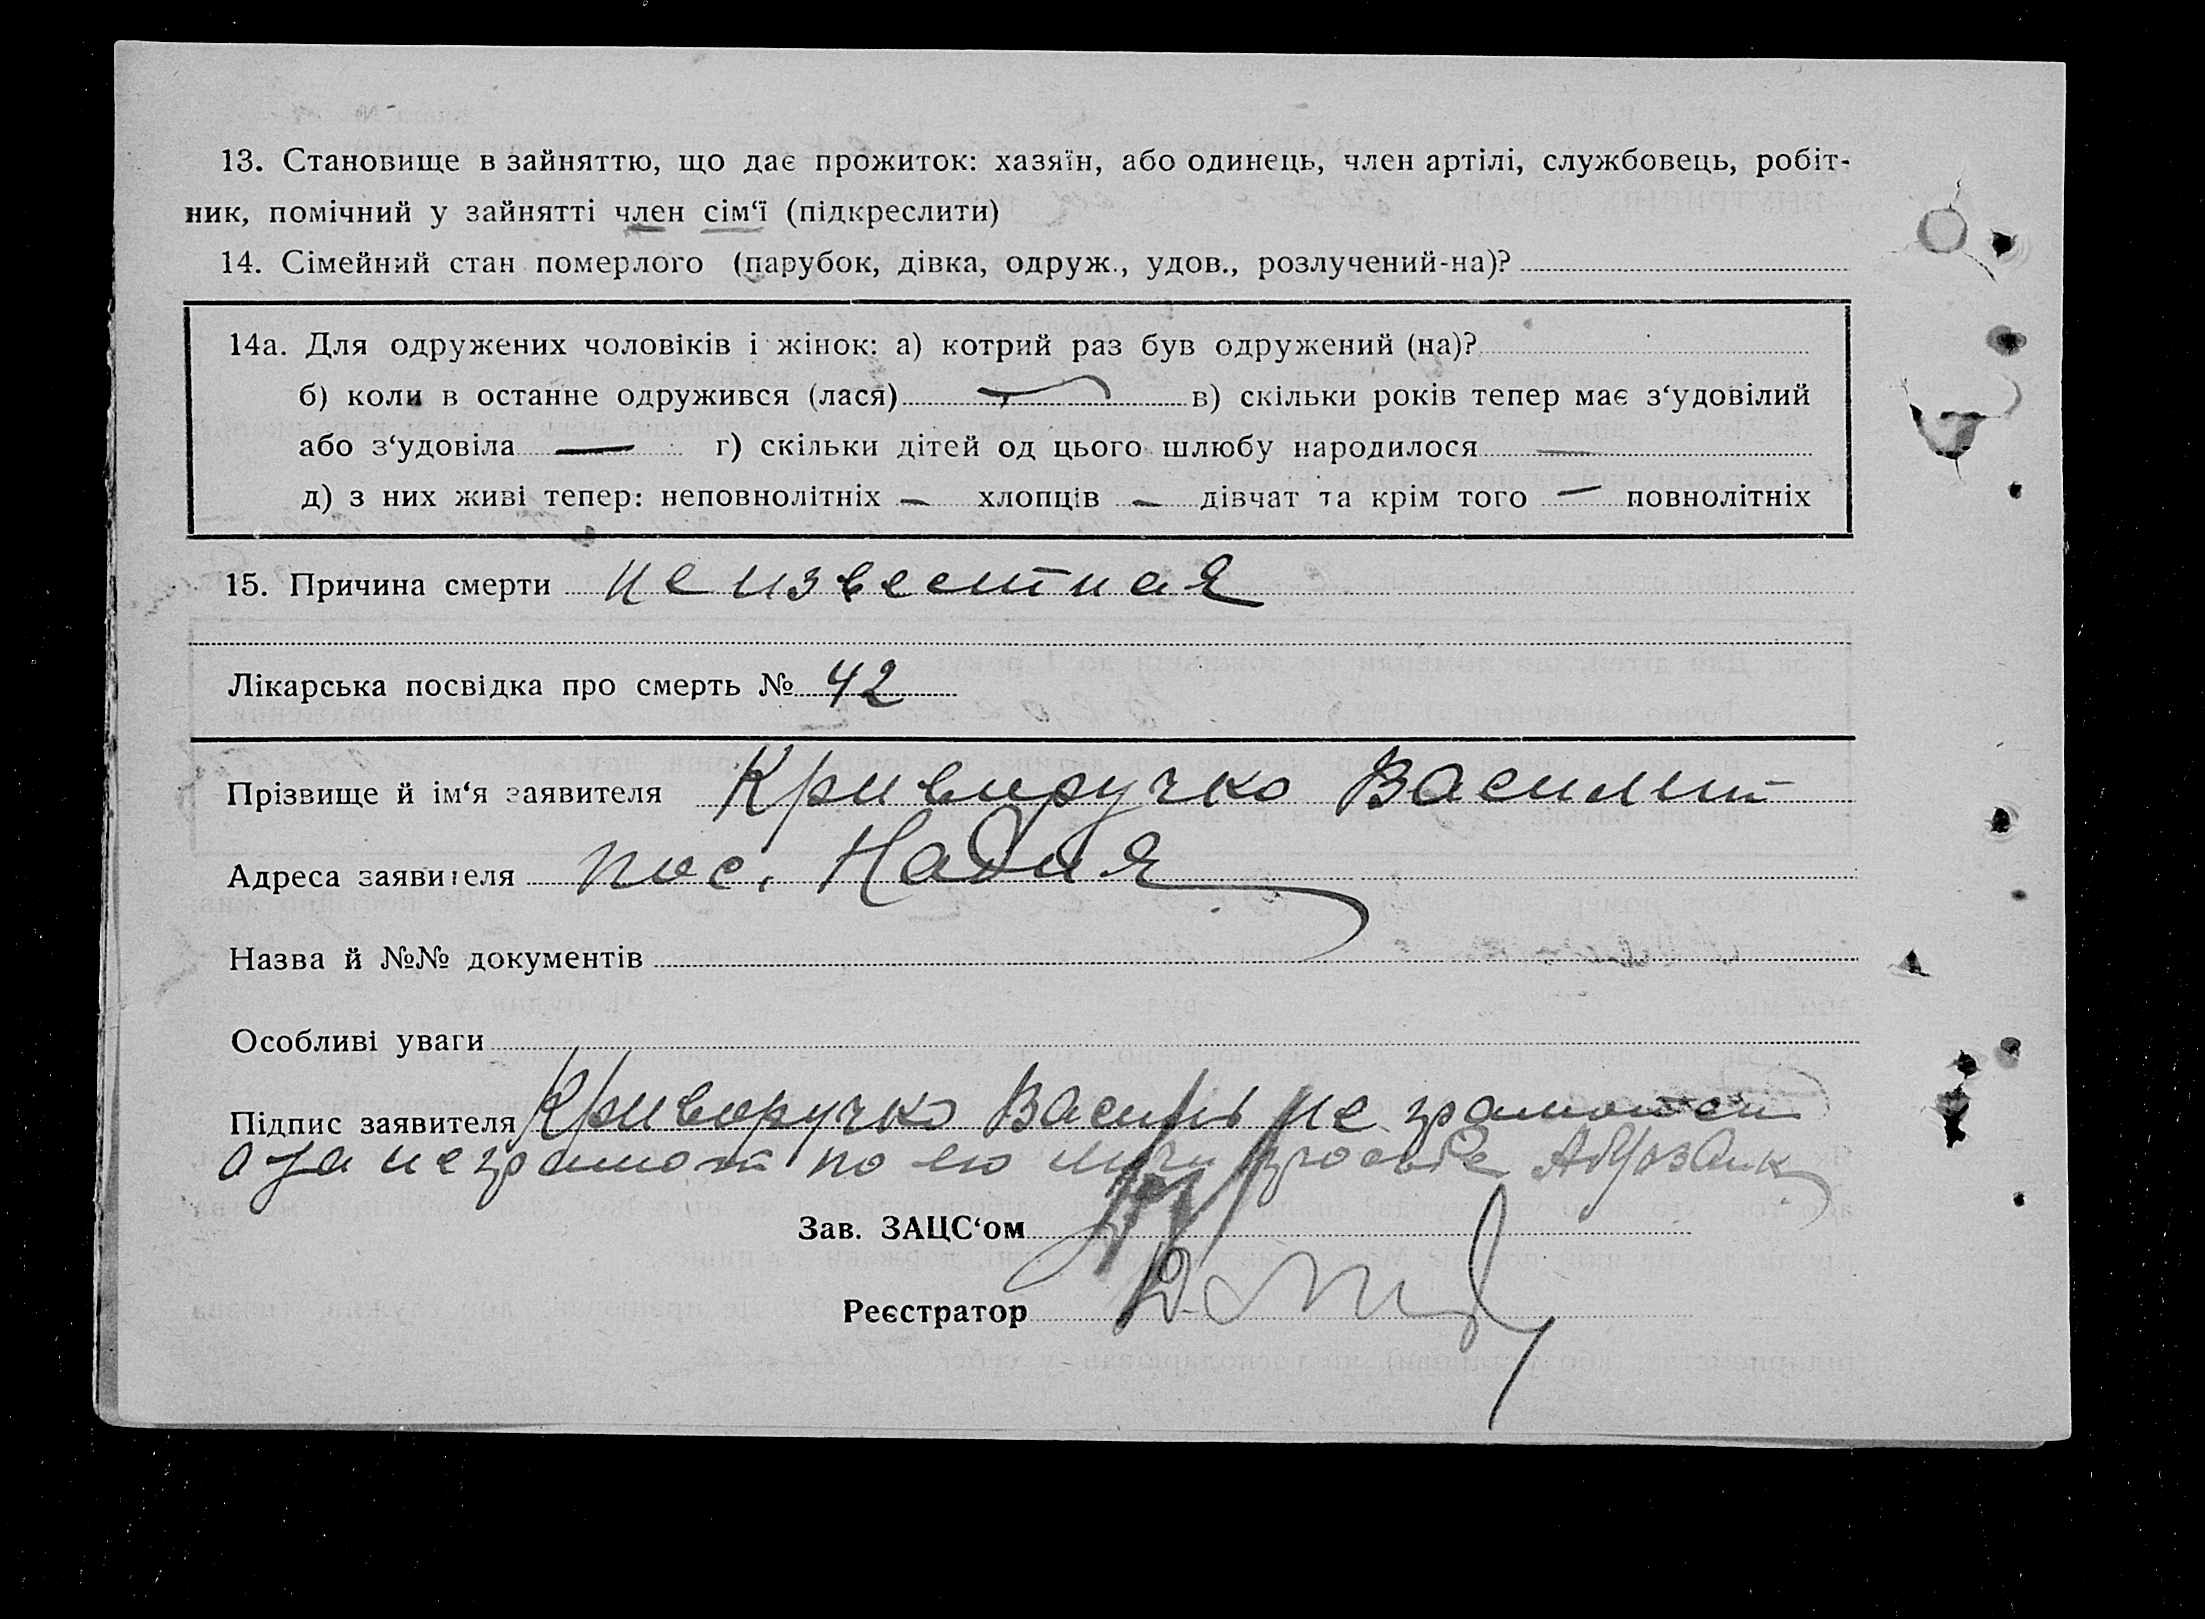 13. Становище в зайняттю, що дає прожиток: хазяїн, або одинець, член артілі, службовець, робіт-
ник, помічний у зайнятті член сім‘ї (підкреслити)
14. Сімейний стан померлого (парубок, дівка, одруж., удов., розлучений-на)?
14а. Для одружених чоловіків і жінок: а) котрий раз був одружений (на)?
б) коли в останне одружився (лася) в) скільки років тепер має з‘удовілий
або з‘удовіла — г) скільки дітей од цього шлюбу народилося —
д) з них живі тепер: неповнолітніх — хлопців — дівчат та крім того — повнолітніх
15. Причина смерти неизвестная
Лікарська посвідка про смерть № 42
Прізвище й ім‘я заявителя Криворучко
Адреса заявителя пос. Надия
Назва й №№ документів
Особливі уваги
Підпис заявителя Криворучко Василь не грамотен
а за неграмот по ею личн просьбе
Зав. ЗАЦС‘ом
Реєстратор